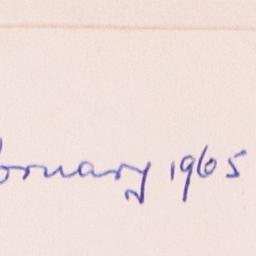 bruary 1965